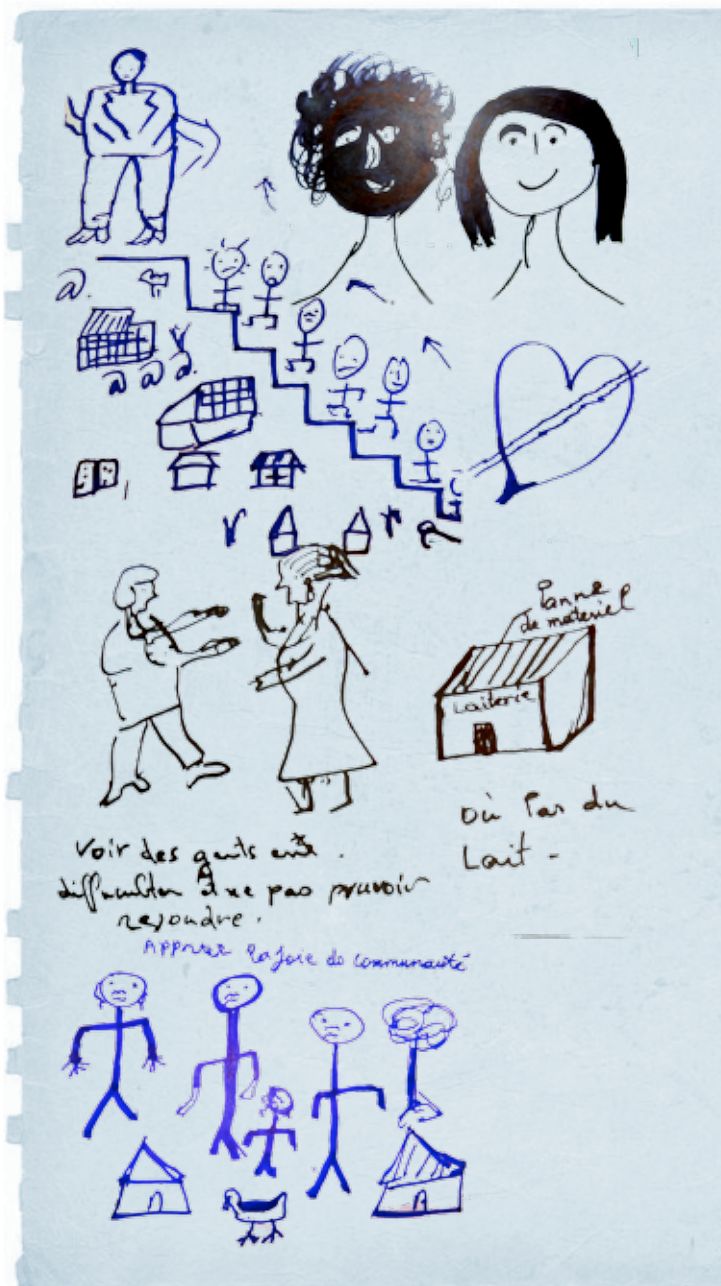 Panne
de materiel
Laiterie
où Pas du
Lait -
Voir des gents
difficulten et ne pas pouvoir
resoudre.
la joie de communauté